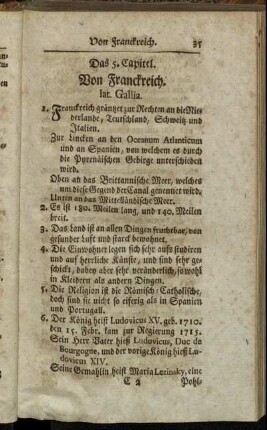 Von Franckreich. 35
Das 5. Capitel.
Von Franckreich.
lat. Gallia.
1. Franckreich gräntzet zur Rechten an die Nie-
derlande, Teutschland, Schweitz und
Italien.
Zur Lincken an den Oceanum Atlanticum
und an Spanien, von welchem es durch
die Pyrenäischen Gebirge unterschieden
wird.
Oben an das Brittannische Meer, welches
um diese Gegend der Canal genennet wird.
Unten an das Mittelländische Meer.
2. Es ist 180. Meilen lang, und 140. Meilen
breit.
3. Das Land ist an allen Dingen fruchtbar, von
gesunder Luft und starck bewohnet.
4. Die Einwohner legen sich sehr aufs studiren
und auf herrliche Künste, und sind sehr ge-
schickt, dabey aber sehr veränderlich, so wohl
in Kleidern als andern Dingen.
5. Die Religion ist die Römisch-Catholische,
doch sind sie nicht so eiferig als in Spanien
und Portugall.
6. Der König heist Ludovicus XV. geb. 1710.
den 15. Febr. kam zur Regierung 1715.
Sein Herr Vater hieß Ludovicus, Duc de
Bourgogne, und der vorige König hieß Lu-
dovicus XIV.
Seine Gemahlin heist Maria Leczinsky, eine
C 2 Pohl-